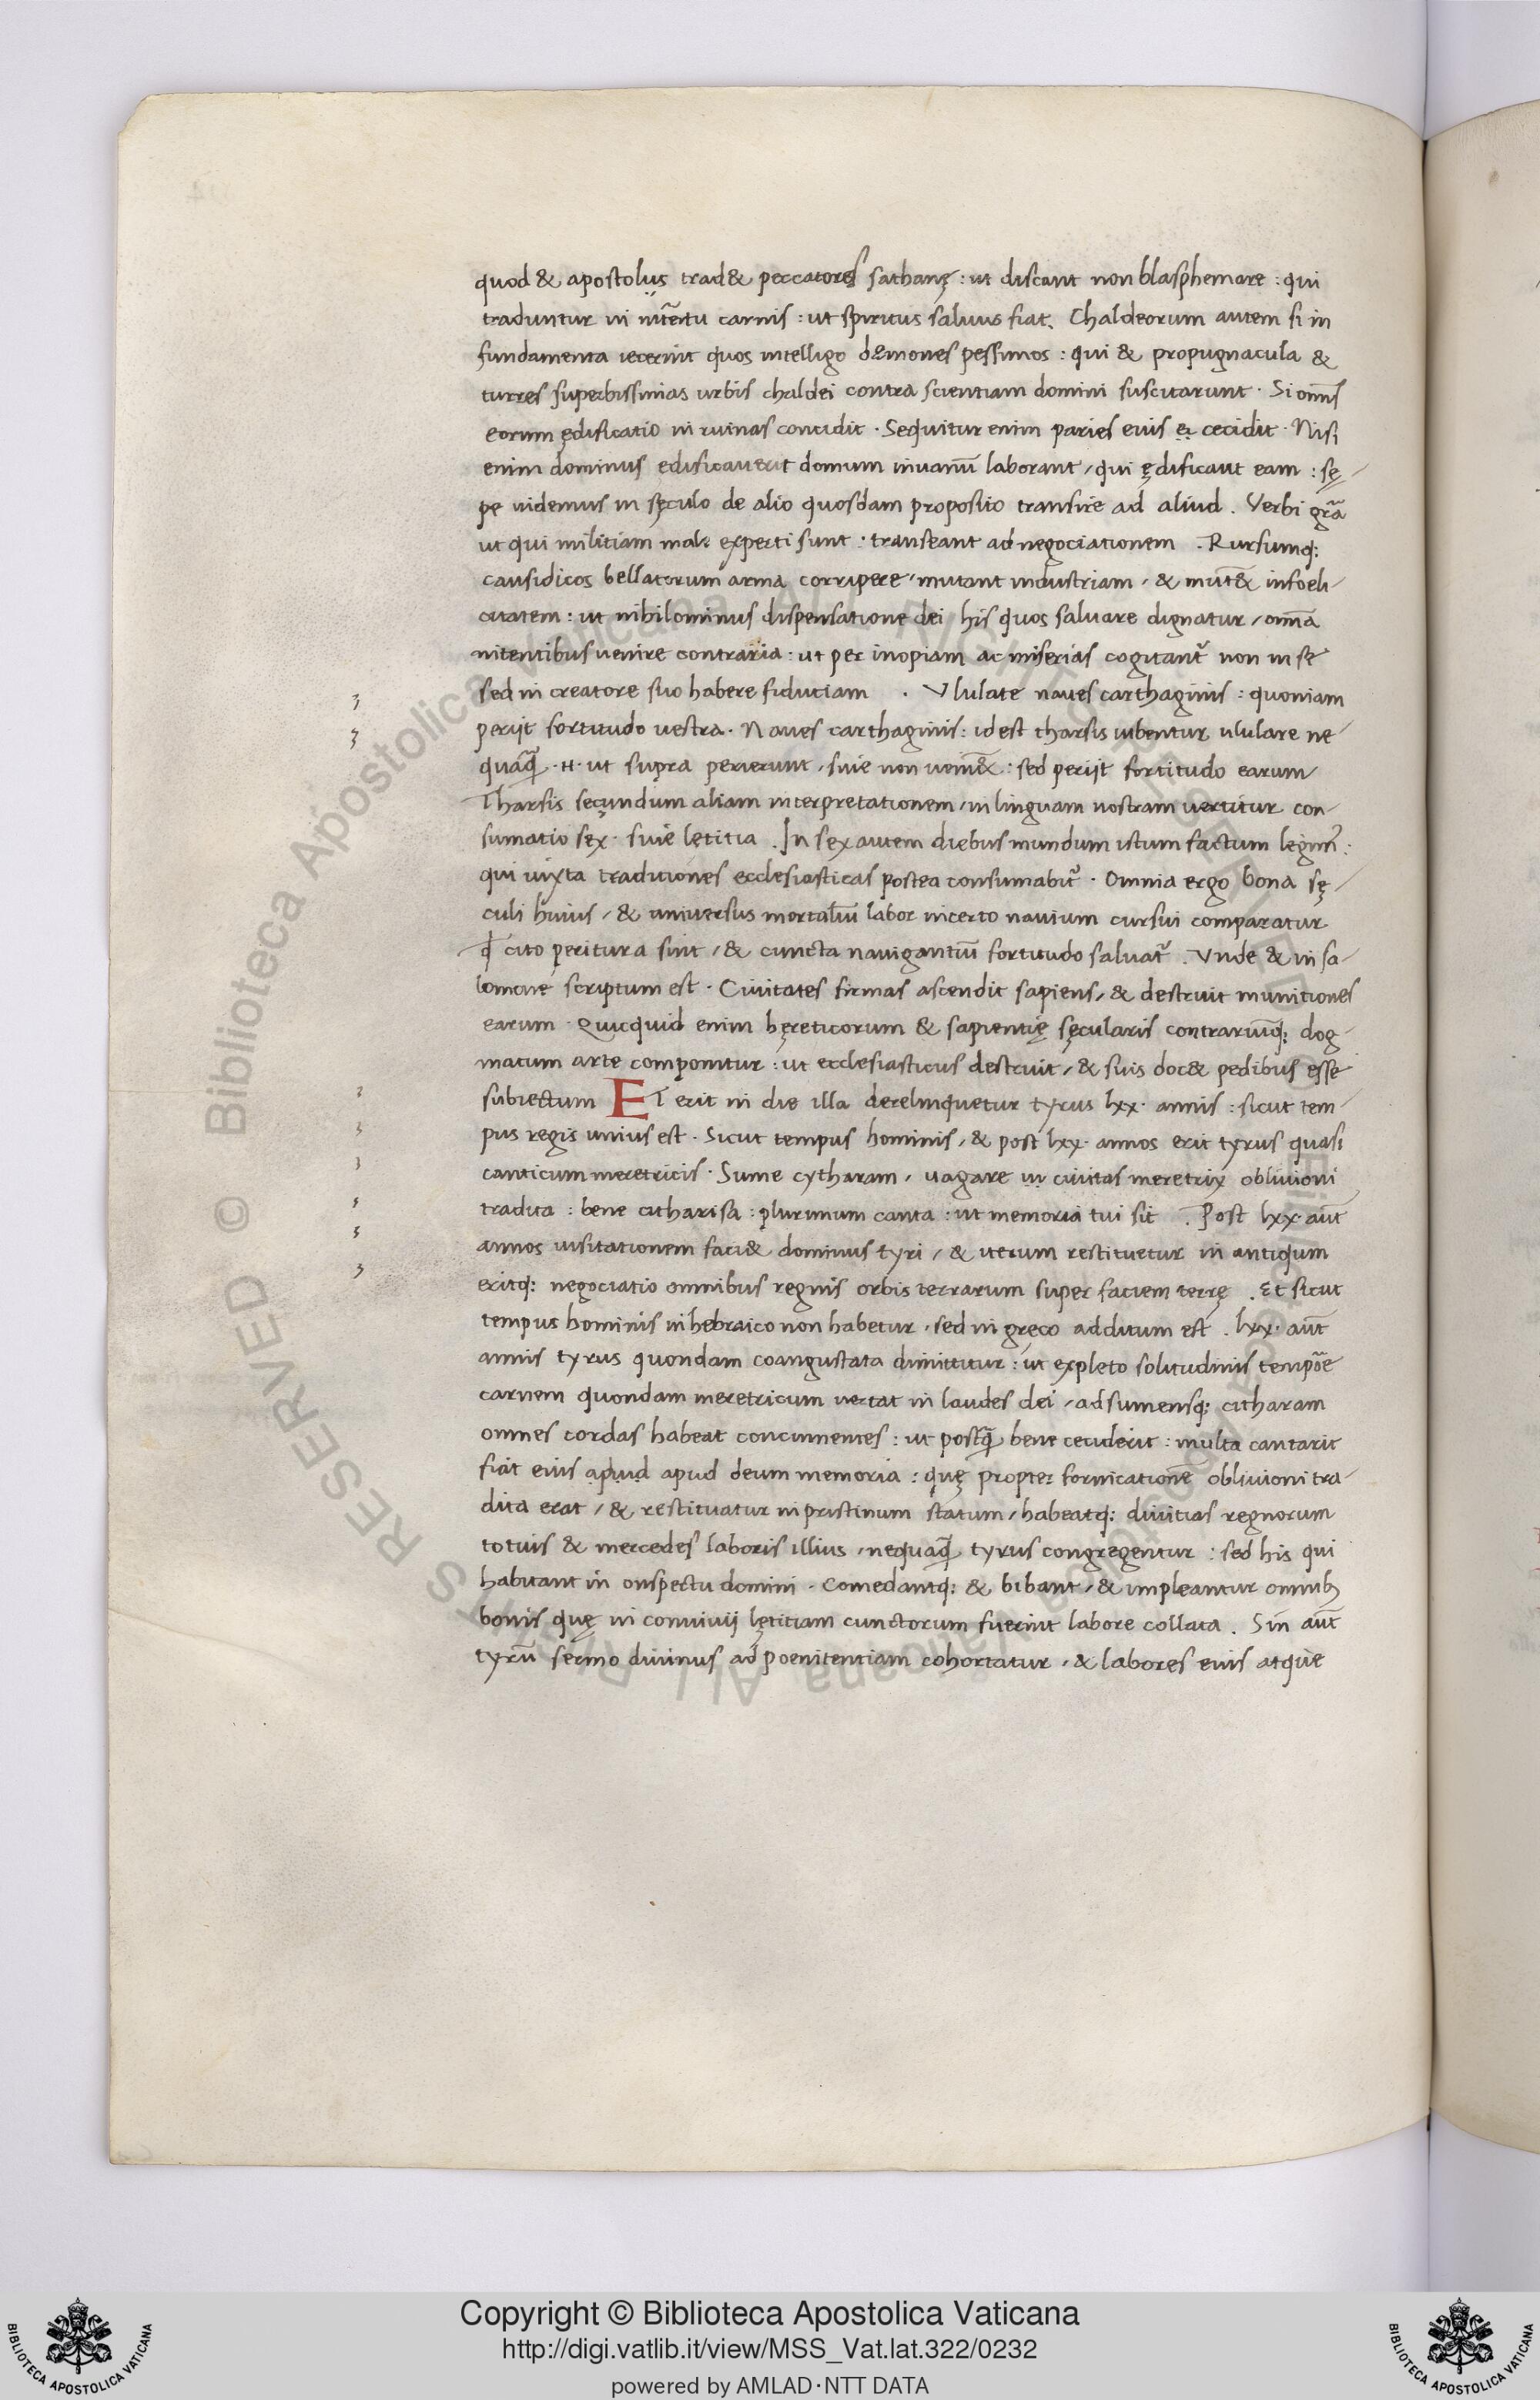 quod & apostolus trad& peccatores sathanę : ut discant non blasphemare : qui
traduntur in int̄eritu carnis : ut spiritus saluus fiat. Chaldeorum autem si in
fundamenta iecerint quos intelligo dęmones pessimos : qui & propugnacula &
turres superbissimas urbis chaldei contra scientiam domini suscitarunt · Si omīs
eorum ędificatio in ruinas concidit · Sequitur enim paries euis et cecidit · Nisi
enim dominus edificauerit domum inuanū laborant / qui ędificant eam : sę-
pe uidemus in sęculo de alio quosdam proposito transire ad aliud . Verbi grā
ut qui militiam male experti sunt · transeant ad negociationem . Rursumq;
causidicos bellatorum arma corripere / mutant industriam / & mut& infoeli-
citatem : ut nihilominus dispensatione dei his quos saluare dignatur / omīa
nitentibus uenire contraria : ut per inopiam ac miserias cogitant̄ non in se
sed in creatore suo habere fiduciam . Vlulate naues carthaginis : quoniam
perijt fortitudo uestra · Naues carthaginis : idest tharsis iubentur ululare ne-
quaq̄ · H · ut supra perierunt / siue non ueni& : sed perijt fortitudo earum
Tharsis secundum aliam interpretationem / in linguam nostram uertitur con-
sumatio sex · siue lętitia . In sex autem diebus mundum istum factum legim̄ :
qui iuxta traditiones ecclesiasticas postea consumabit̄ · Omnia ergo bona sę-
culi huius / & uniuersus mortaliū labor incerto nauium cursui comparatur
q̄ cito peritura sint / & cuncta nauigantiū fortitudo saluat̄ . Vnde & in sa-
lomone scriptum est · Ciuitates firmas ascendit sapiens / & destruit munitiones
earum · Quicquid enim hęreticorum & sapientię sęcularis contrariūq; dog-
matum arte componitur : ut ecclesiasticus destruit / & suis doc& pedibus esse
subiectum ET erit in die illa derelinquetur tyrus lxx · annis : sicut tem-
pus regis unius est · Sicut tempus hominis / & post lxx · annos erit tyrus quasi
canticum meretricis · Sume cytharam / uagare in ciuitas meretrix obliuioni
tradita : bene citharisa : plurimum canta : ut memoria tui sit . Post lxx · aūt
annos uisitationem faci& dominus tyri / & iterum restituetur in antiqum
eritq; negociatio omnibus regnis orbis terrarum super faciem terrę . Et sicut
tempus hominis in hebraico non habetur · sed in greco additum est . lxx · aūt
annis tyrus quondam coangustata dimittitur : ut expleto solitudinis tempōe
carnem quondam meretricum uertat in laudes dei / adsumensq; citharam
omnes cordas habeat concinnentes : ut postq̄ bene ceciderit : multa cantarit
fiat euis apud apud deum memoria : quę propter fornicationē obliuioni tra-
dita erat / & restituatur in pristinum statum / habeatq; diuitias regnorum
totuis & mercedes laboris illius / nequaq̄ tyrus congregentur : sed his qui
habitant in onspectu domini · Comedantq; & bibant / & impleantur omnib;
bonis quę in conuiuij lętitiam cunctorum fuerint labore collata . Sin aūt
tyrū sermo diuinus ad poenitentiam cohortatur / & labores euis atque
Copyright © Biblioteca Apostolica Vaticana
http://digi.vatlib.it/view/MSS_Vat.lat.322/0232
powered by AMLAD·NTT DATA
BIBLIOTECA APOSTOLICA VATICANA
BIBLIOTECA APOSTOLICA VATICANA